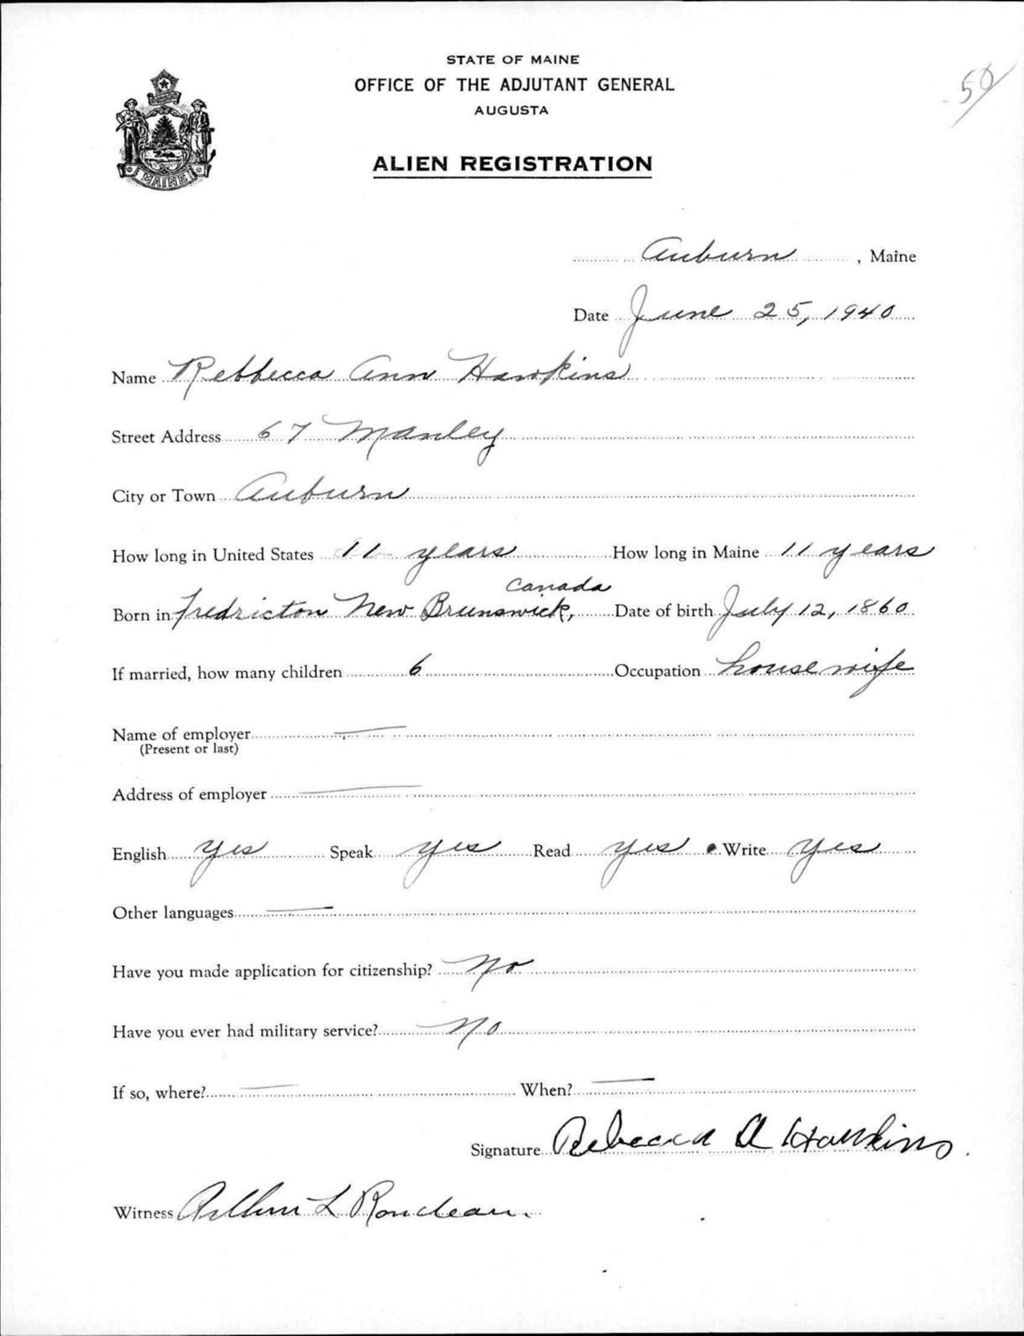 50
STATE OF MAINE
OFFICE OF THE ADJUTANT GENERAL
AUGUSTA
MAINE
ALIEN REGISTRATION
Auburn, Maine
Date June 25, 1940
Name Rebbecca Ann Hawkins
Street Address 67 Manley
City or Town Auburn
How long in United States 11 years How long in Maine 11 years
Canada
Born in Fredricton New Brunswick, Date of birth July 12, 1860
If married, how many children 6 Occupation housewife
Name of employer —
(Present or last)
Address of employer —
English yes Speak yes Read yes Write yes
Other languages —
Have you made application for citizenship? No
Have you ever had military service? No
If so, where? — When? —
Signature Rebecca A Hawkins
Witness L Rondeau.